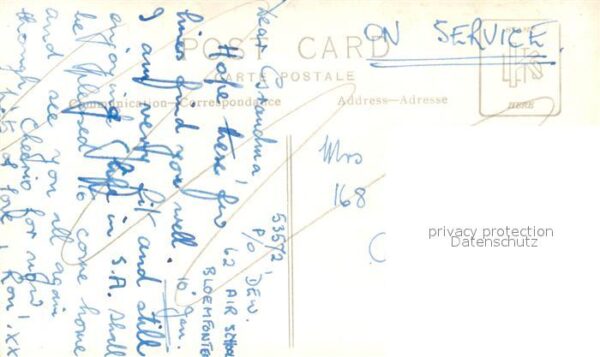 POST CARD
CARTE POSTALE
Communication-Correspondence
Address-Adresse
HERE
ON SERVICE
Mrs
168
privacy protection
Datenschutz
53572, DEW.
P/O 62 AIR SCHO
BLOEMFONTE
10 Jan.
Dear Grandma,
Hope these few
lines find you well.
I am very fit and still
enjoying life in S.A. Shall
be pleased to come home
and see you all again
though. Cheerio for now,
lots of love, Ron. xx